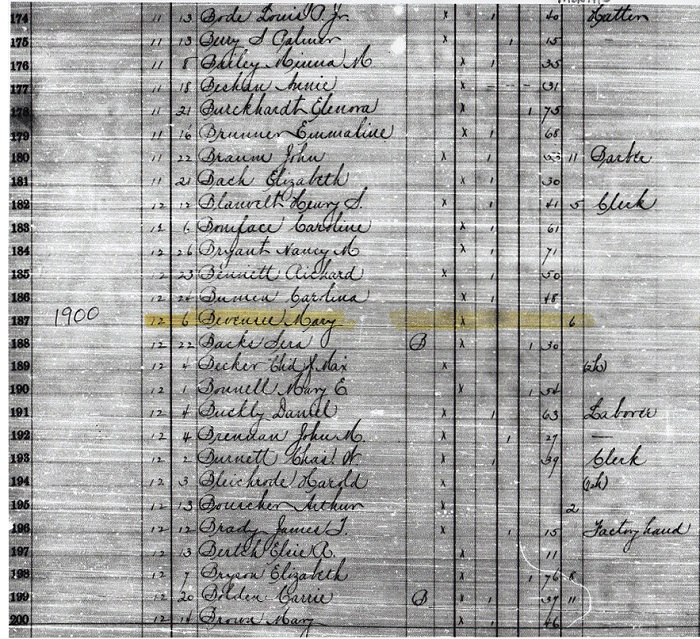 174 11 13 Bode Louis P. Jr. x 1 40 Hatter
175 11 13 Berry S Palmer x 1 15 -
176 11 8 Bailey Menna M x 1 35
177 11 18 Annie x
178 11 21 Burckhardt Elenora x 1 75
179 11 16 Brunner Emmaline x 1 68
180 11 22 Braum John x 1 11 Barber
181 11 21 Bach Elizabeth x 1 30
182 12 12 Blauvelt Henry S. x 1 41 5 Clerk
183 12 6 Boniface Caroline x 1 61
184 12 26 Bryant Nancy M x 1 71
185 2 23 Bennett Richard x 1 50
186 12 24 Carolina x 1 48
1900 187 12 6 Bevensee Mary x 6
188 12 22 Backs B x 1 30
189 12 4 Becker Chd of Max x
190 12 1 Bonnell Mary E x 1 54
191 12 4 Buckly Daniel x 1 63 Laborer
192 12 4 Brennan John M. x 1 27 —
193 12 2 Burnett Chas W x 1 39 Clerk
194 12 3 Bleichrode Harold x
195 12 13 Bourscher Arthur x 2
196 12 12 Brady James T. x 1 15 Factory hand
197 12 13 Bertch Elsie A. x 11
198 12 7 Bryson Elizabeth x 1 76 8
199 12 20 Bolden Carrie B x 1 37 11
200 12 14 Brown Mary x 1 46